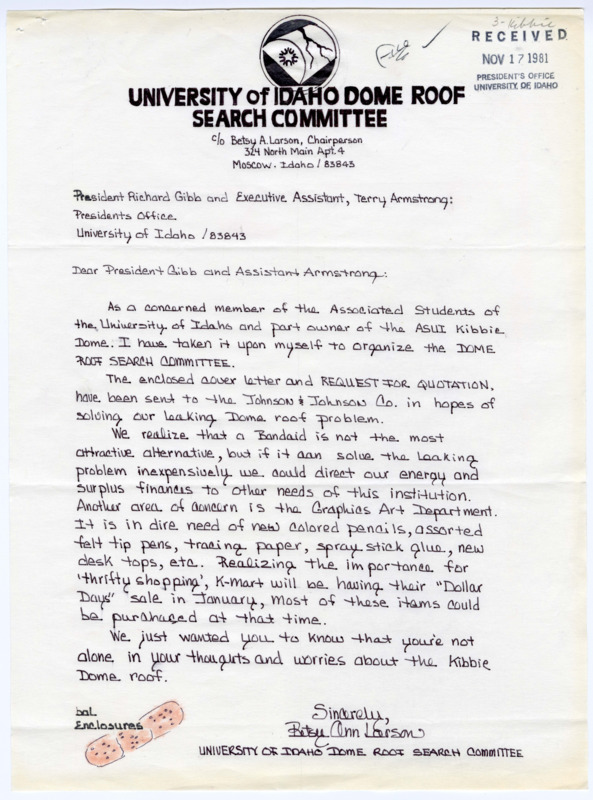 3-Kibbie
RECEIVED
NOV 17 1981
PRESIDENT'S OFFICE
UNIVERSITY OF IDAHO
File
UNIVERSITY of IDAHO DOME ROOF
SEARCH COMMITTEE
c/o Betsy A. Larson, Chairperson
324 North Main Apt. 4
Moscow, Idaho / 83843
President Richard Gibb and Executive Assistant, Terry Armstrong:
Presidents Office
University of Idaho / 83843
Dear President Gibb and Assistant Armstrong:
As a concerned member of the Associated Students of
the University of Idaho and part owner of the ASUI Kibbie
Dome. I have taken it upon myself to organize the DOME
ROOF SEARCH COMMITTEE.
The enclosed cover letter and REQUEST FOR QUOTATION,
have been sent to the Johnson & Johnson Co. in hopes of
solving our leaking Dome roof problem.
We realize that a Bandaid is not the most
attractive alternative, but if it can solve the leaking
problem inexpensively we could direct our energy and
surplus finances to other needs of this institution.
Another area of concern is the Graphics Art Department.
It is in dire need of new colored pencils, assorted
felt tip pens, tracing paper, spray stick glue, new
desk tops, etc. Realizing the importance for
'thrifty shopping', K-mart will be having their "Dollar
Days" sale in January, most of these items could
be purchased at that time.
We just wanted you to know that you're not
alone in your thoughts and worries about the Kibbie
Dome roof.
bal
Enclosures
Sincerely,
Betsy Ann Larson
UNIVERSITY OF IDAHO DOME ROOF SEARCH COMMITTEE